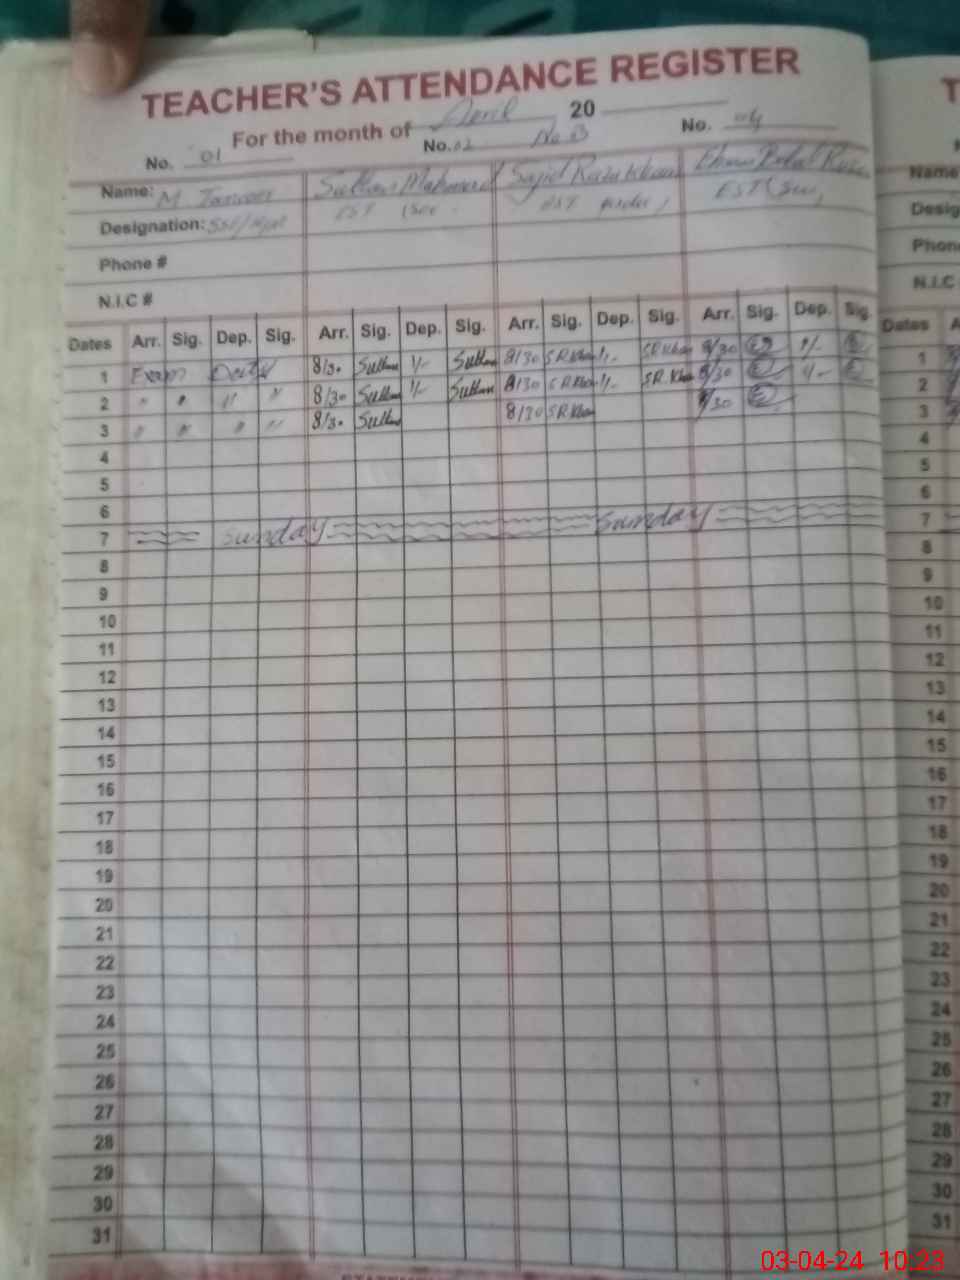 TEACHER'S ATTENDANCE REGISTER
For the month of April 20
No. 01 No. 02 No. 3 No. 04
Name: M Tanveer Sultan Mahmood Sajid Raza Khan Bilal
Designation: SST EST EST
Phone #
N.I.C #
Dates Arr. Sig. Dep. Sig. Arr. Sig. Dep. Sig. Arr. Sig. Dep. Sig. Arr. Sig. Dep. Sig.
1 Exam Duty 8/30 Sultan 1/- Sultan 8/30 SR Khan 1/- SR Khan 8/30 1/-
2 " " " " 8/30 Sultan 1/- Sultan 8/30 SR Khan 1/- SR Khan 8/30 1/-
3 " " " " 8/30 Sultan 8/30 SR Khan 8/30
4
5
6
7 Sunday Sunday
8
9
10
11
12
13
14
15
16
17
18
19
20
21
22
23
24
25
26
27
28
29
30
31
T
Name
Desig
Phon
N.I.C
Dates A
1
2
3
4
5
6
7
8
9
10
11
12
13
14
15
16
17
18
19
20
21
22
23
24
25
26
27
28
29
30
31
03-04-24 10:23